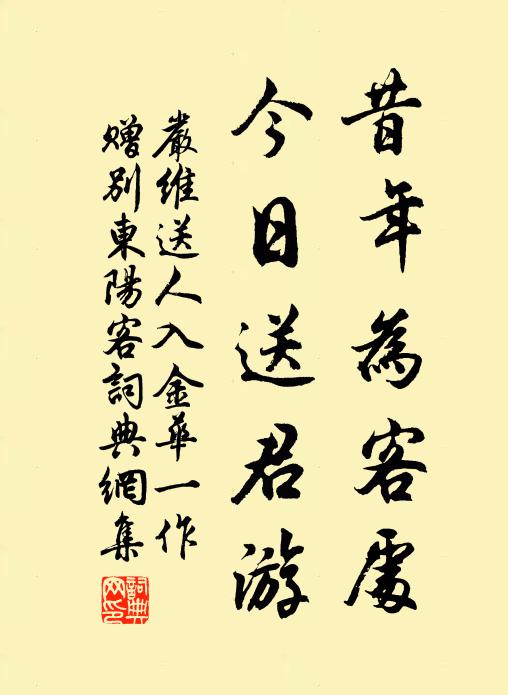 昔年為客處
今日送君游
嚴維送人入金華一作
贈別東陽客詞典網集
詞典網印